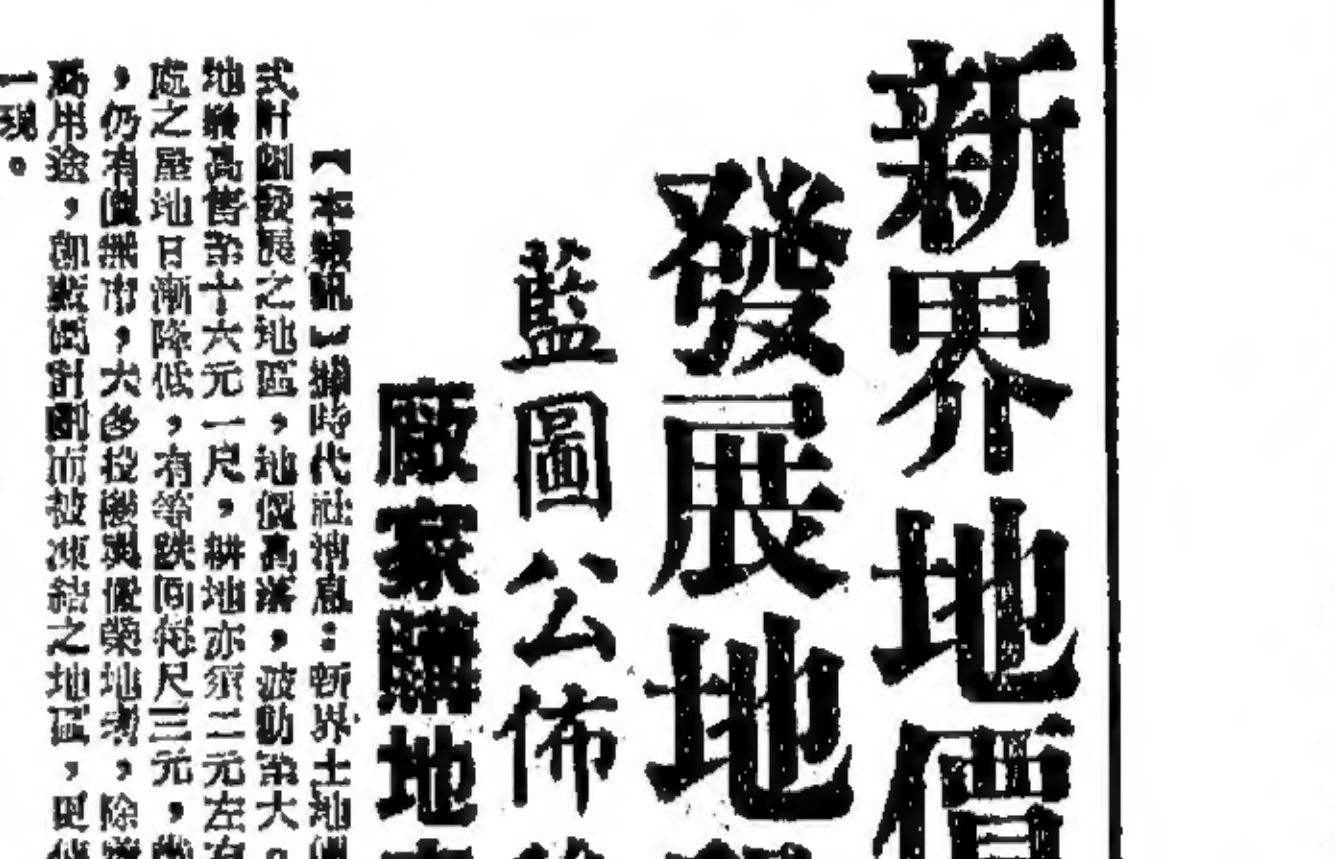 新界地價
發展地
藍圖公佈
廠家購地
【本報訊】據時代社消息：新界土地
式計劃發展之地區，地價高漲，波動至大。
地聆高售至十六元一尺，耕地亦須二元左右
處之屋地日漸降低，有等跌回每尺三元，
，仍有價無市，大多投機與優榮地者，除
用途，劃而被凍結之地區，更
一現。